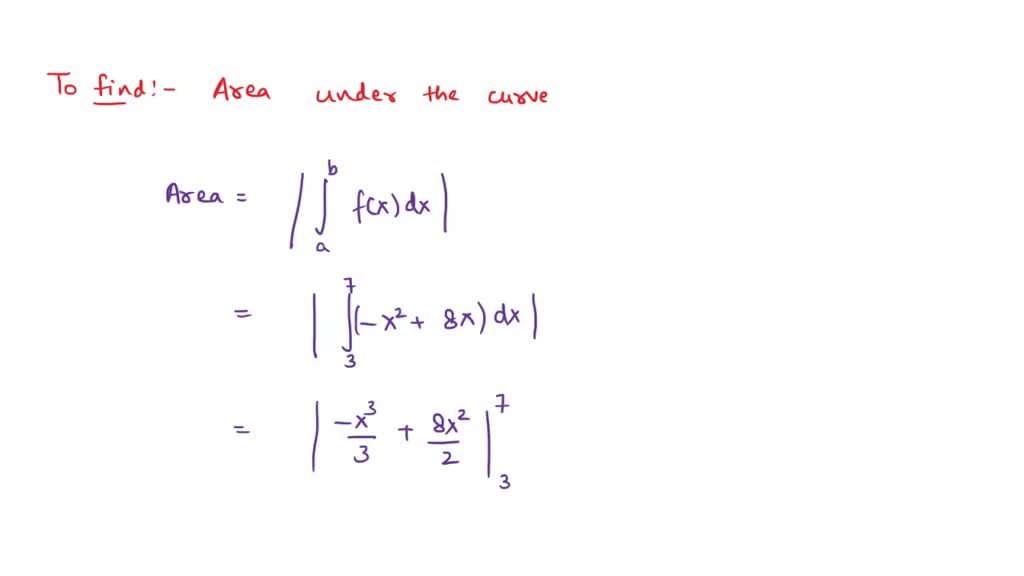 To find:- Area under the curve
Area = | ∫_a^b f(x) dx |
= | ∫_3^7 (-x² + 8x) dx |
= | -x³/3 + 8x²/2 |_3^7